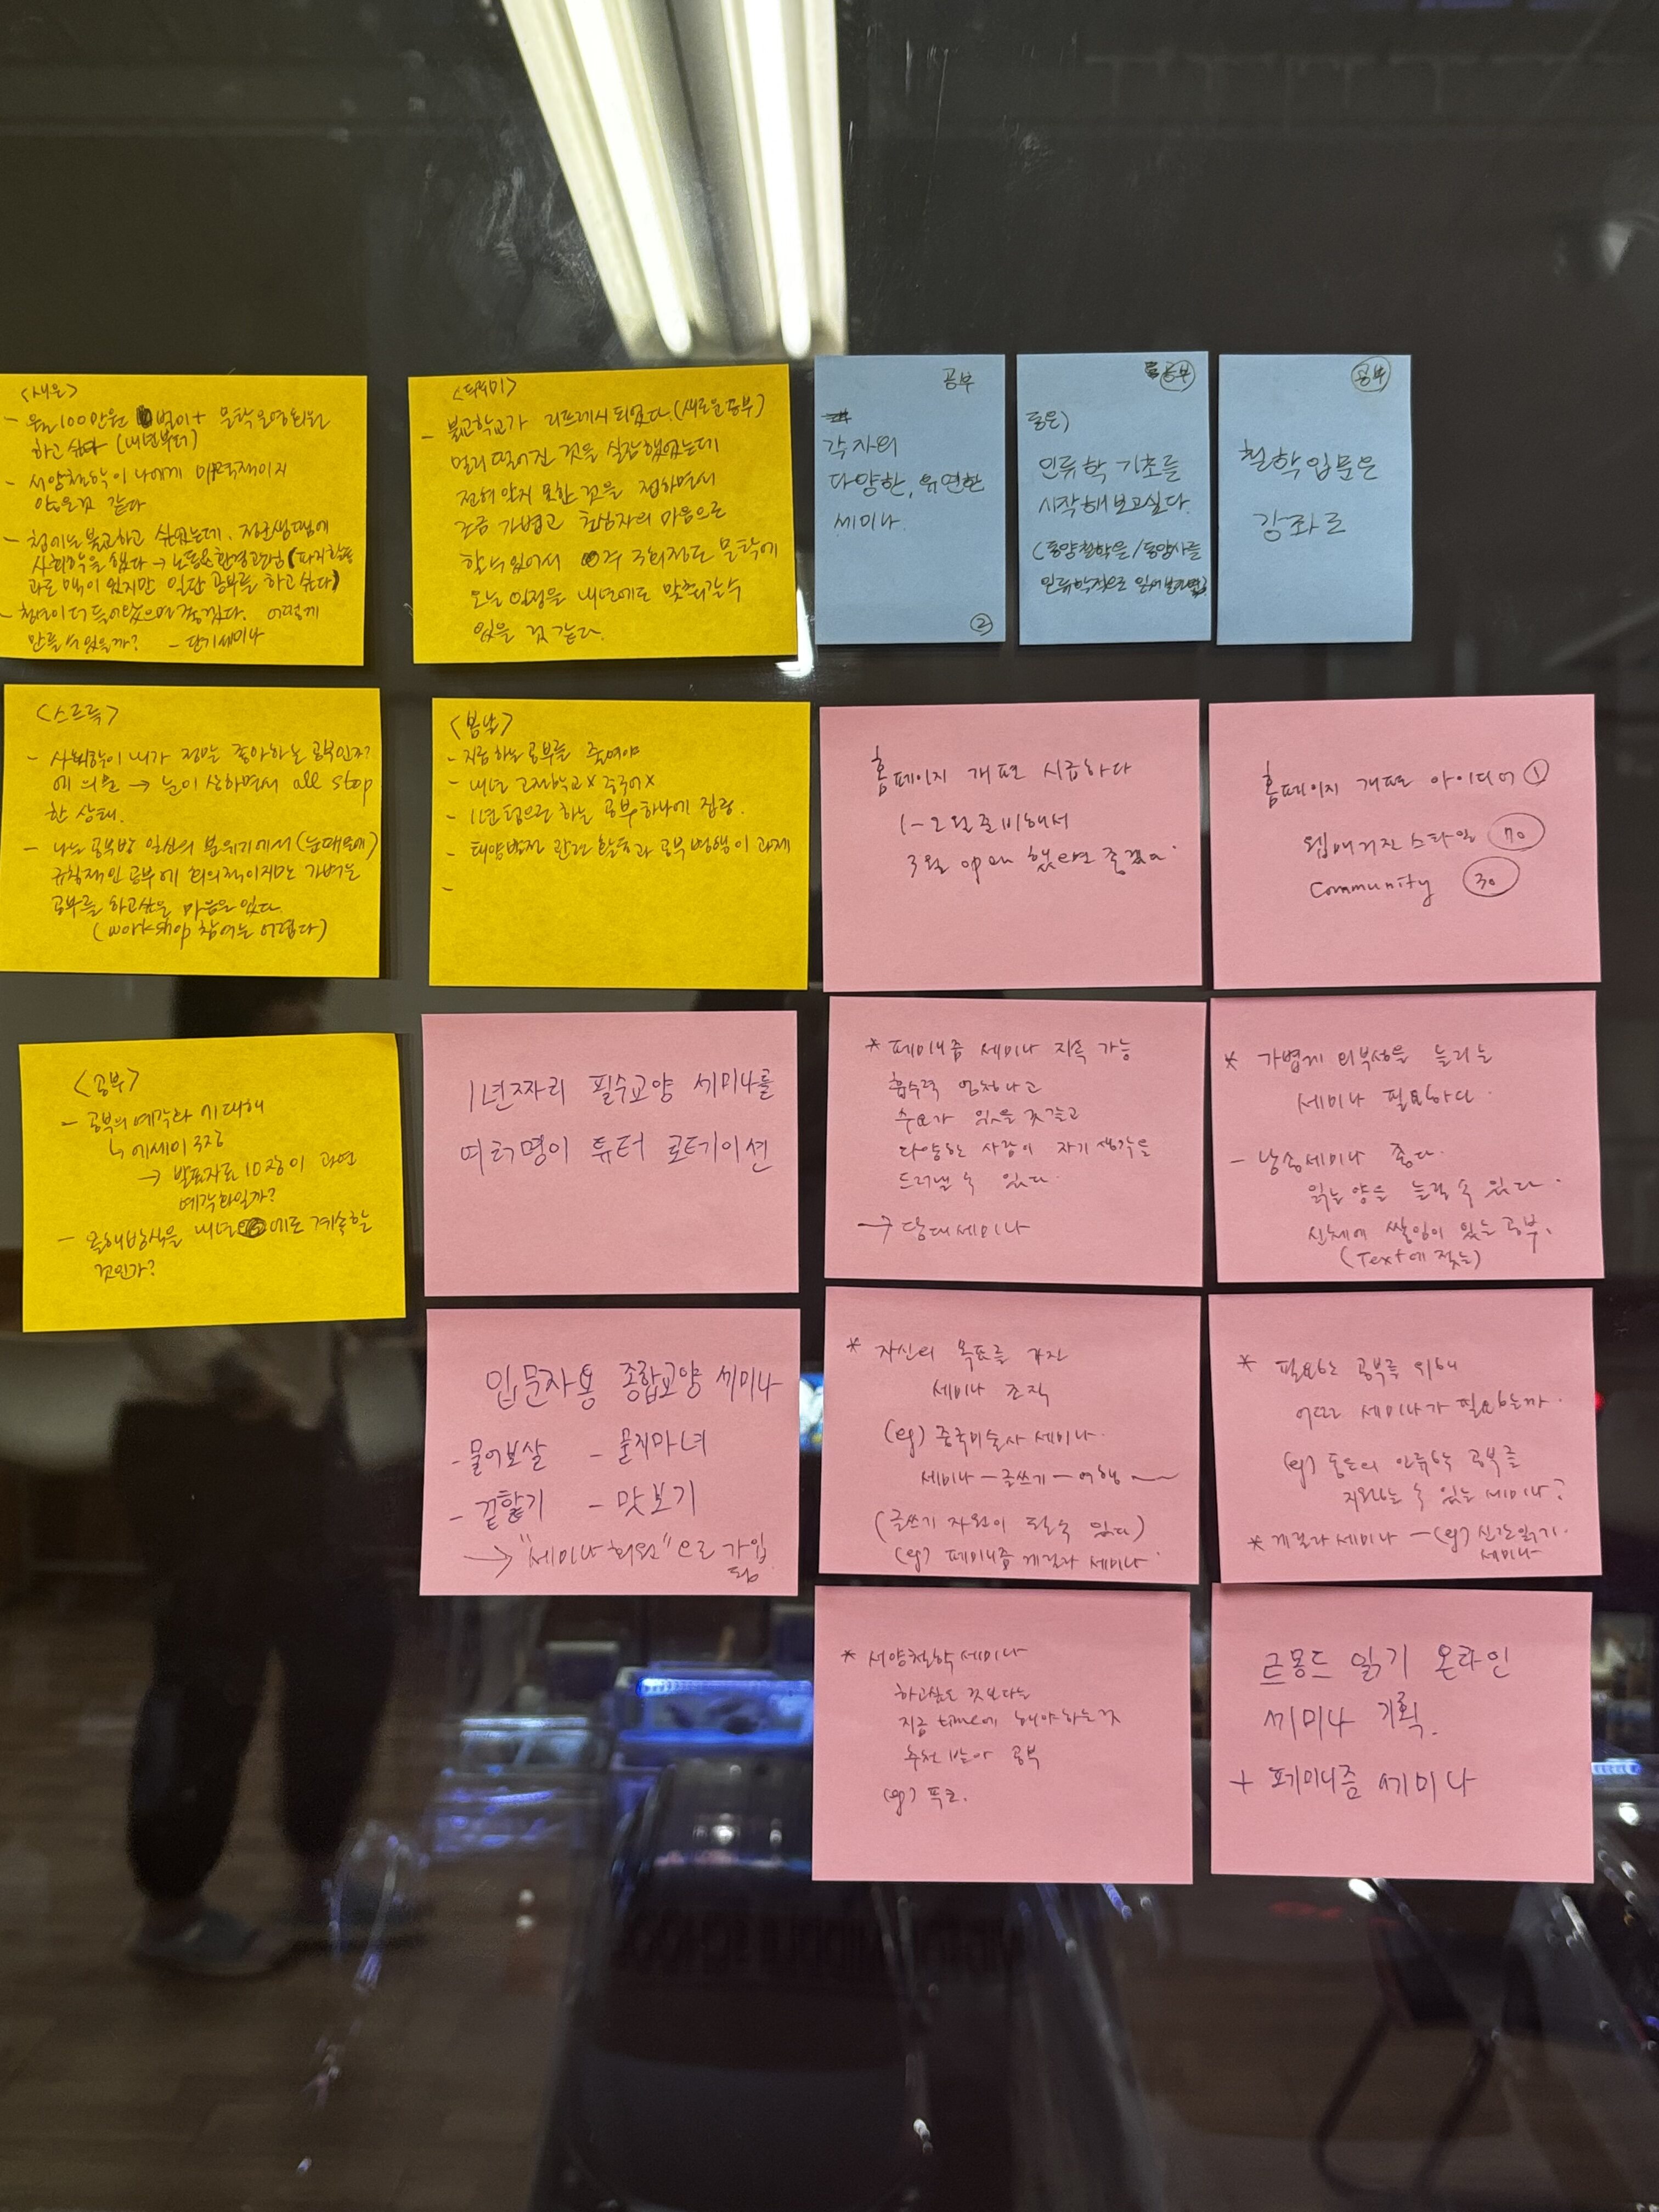 <새은>
- 월 100만원 벌이 + 문학
하고 싶다 (내년부터)
- 서양철학이 나에게 매력적이지
않은 것 같다
- 첨에는 불교하고 싶었는데, 정군샘 땜에
사회학을 했다 → 노동&환경관심 (
과는 맥이 있지만 일단 공부를 하고 싶다)
- 청년이 더 들어왔으면 좋겠다. 어떻게
만들 수 있을까? - 단기세미나
불교학교가 리프레시 되었다. (새로운 공부)
멀리 떨어진 것을 실감했었는데
전혀 알지 못한 것을 접하면서
조금 가볍고 초심자의 마음으로
할 수 있어서 주 3회정도 문탁에
오는 일정을 내년에도 맞춰갈 수
있을 것 같다.
공부
각자의
다양한, 유연한
세미나
②
공부
동은)
인류학 기초를
시작해보고싶다.
(동양철학을/동양사를
인류학적으로 읽어보려면)
공부
철학입문은
강좌로
<스르륵>
- 사회학이 내가 정말 좋아하는 공부인지?
에 의문 → 눈이 상하면서 all stop
한 상태.
- 나는 공부방 일산의 분위기에서 (눈때문에)
규칙적인 공부에 회의적이지만 가벼운
공부를 하고싶은 마음은 있다.
(workshop 참여는 어렵다)
<봄날>
- 지금 하는 공부를 줄여야
- 내년 고전학교 x 중국어 x
- 1년 텀으로 하는 공부 하나에 집중.
- 태양발전 관련 활동과 공부 병행이 과제
-
홈페이지 개편 시급하다
1-2월 준비해서
3월 open 했으면 좋겠다.
홈페이지 개편 아이디어 ①
웹매거진 스타일 70
Community 30
<공부>
- 공부의 예각화 기대해
↳ 에세이 3장
→ 발표자료 10장이 과연
예각화일까?
- 올해방식을 내년에도 계속할
것인가?
1년짜리 필수교양 세미나를
여러명이 튜터 로테이션
* 페미니즘 세미나 지속 가능
흡수력 엄청나고
수요가 있을 것 같고
다양한 사람이 자기 생각을
드러낼 수 있다.
→ 당대세미나
* 가볍게 외부성을 늘리는
세미나 필요하다.
- 낭송세미나 좋다.
읽는 양을 늘릴 수 있다.
신체에 쌓임이 있는 공부.
(Text에 젖는)
입문자용 종합교양 세미나
- 물어보살 - 묻지마녀
- 겉핥기 - 맛보기
→ "세미나 회원"으로 가입
됨
* 자신의 목표를 가진
세미나 조직
(eg) 중국미술사 세미나.
세미나 - 글쓰기 - 여행 ~
(글쓰기 자원이 될 수 있다)
(eg) 페미니즘 게릴라 세미나
* 필요한 공부를 위해
어떤 세미나가 필요한가.
(eg) 동은의 인류학 공부를
지원하는 수 있는 세미나?
* 게릴라 세미나 - (eg) 신간읽기
세미나
* 서양철학 세미나
하고싶은 것보다는
지금 time에 해야 하는 것
추천 받아 공부
(eg) 푸코.
르몽드 읽기 온라인
세미나 기획.
+ 페미니즘 세미나